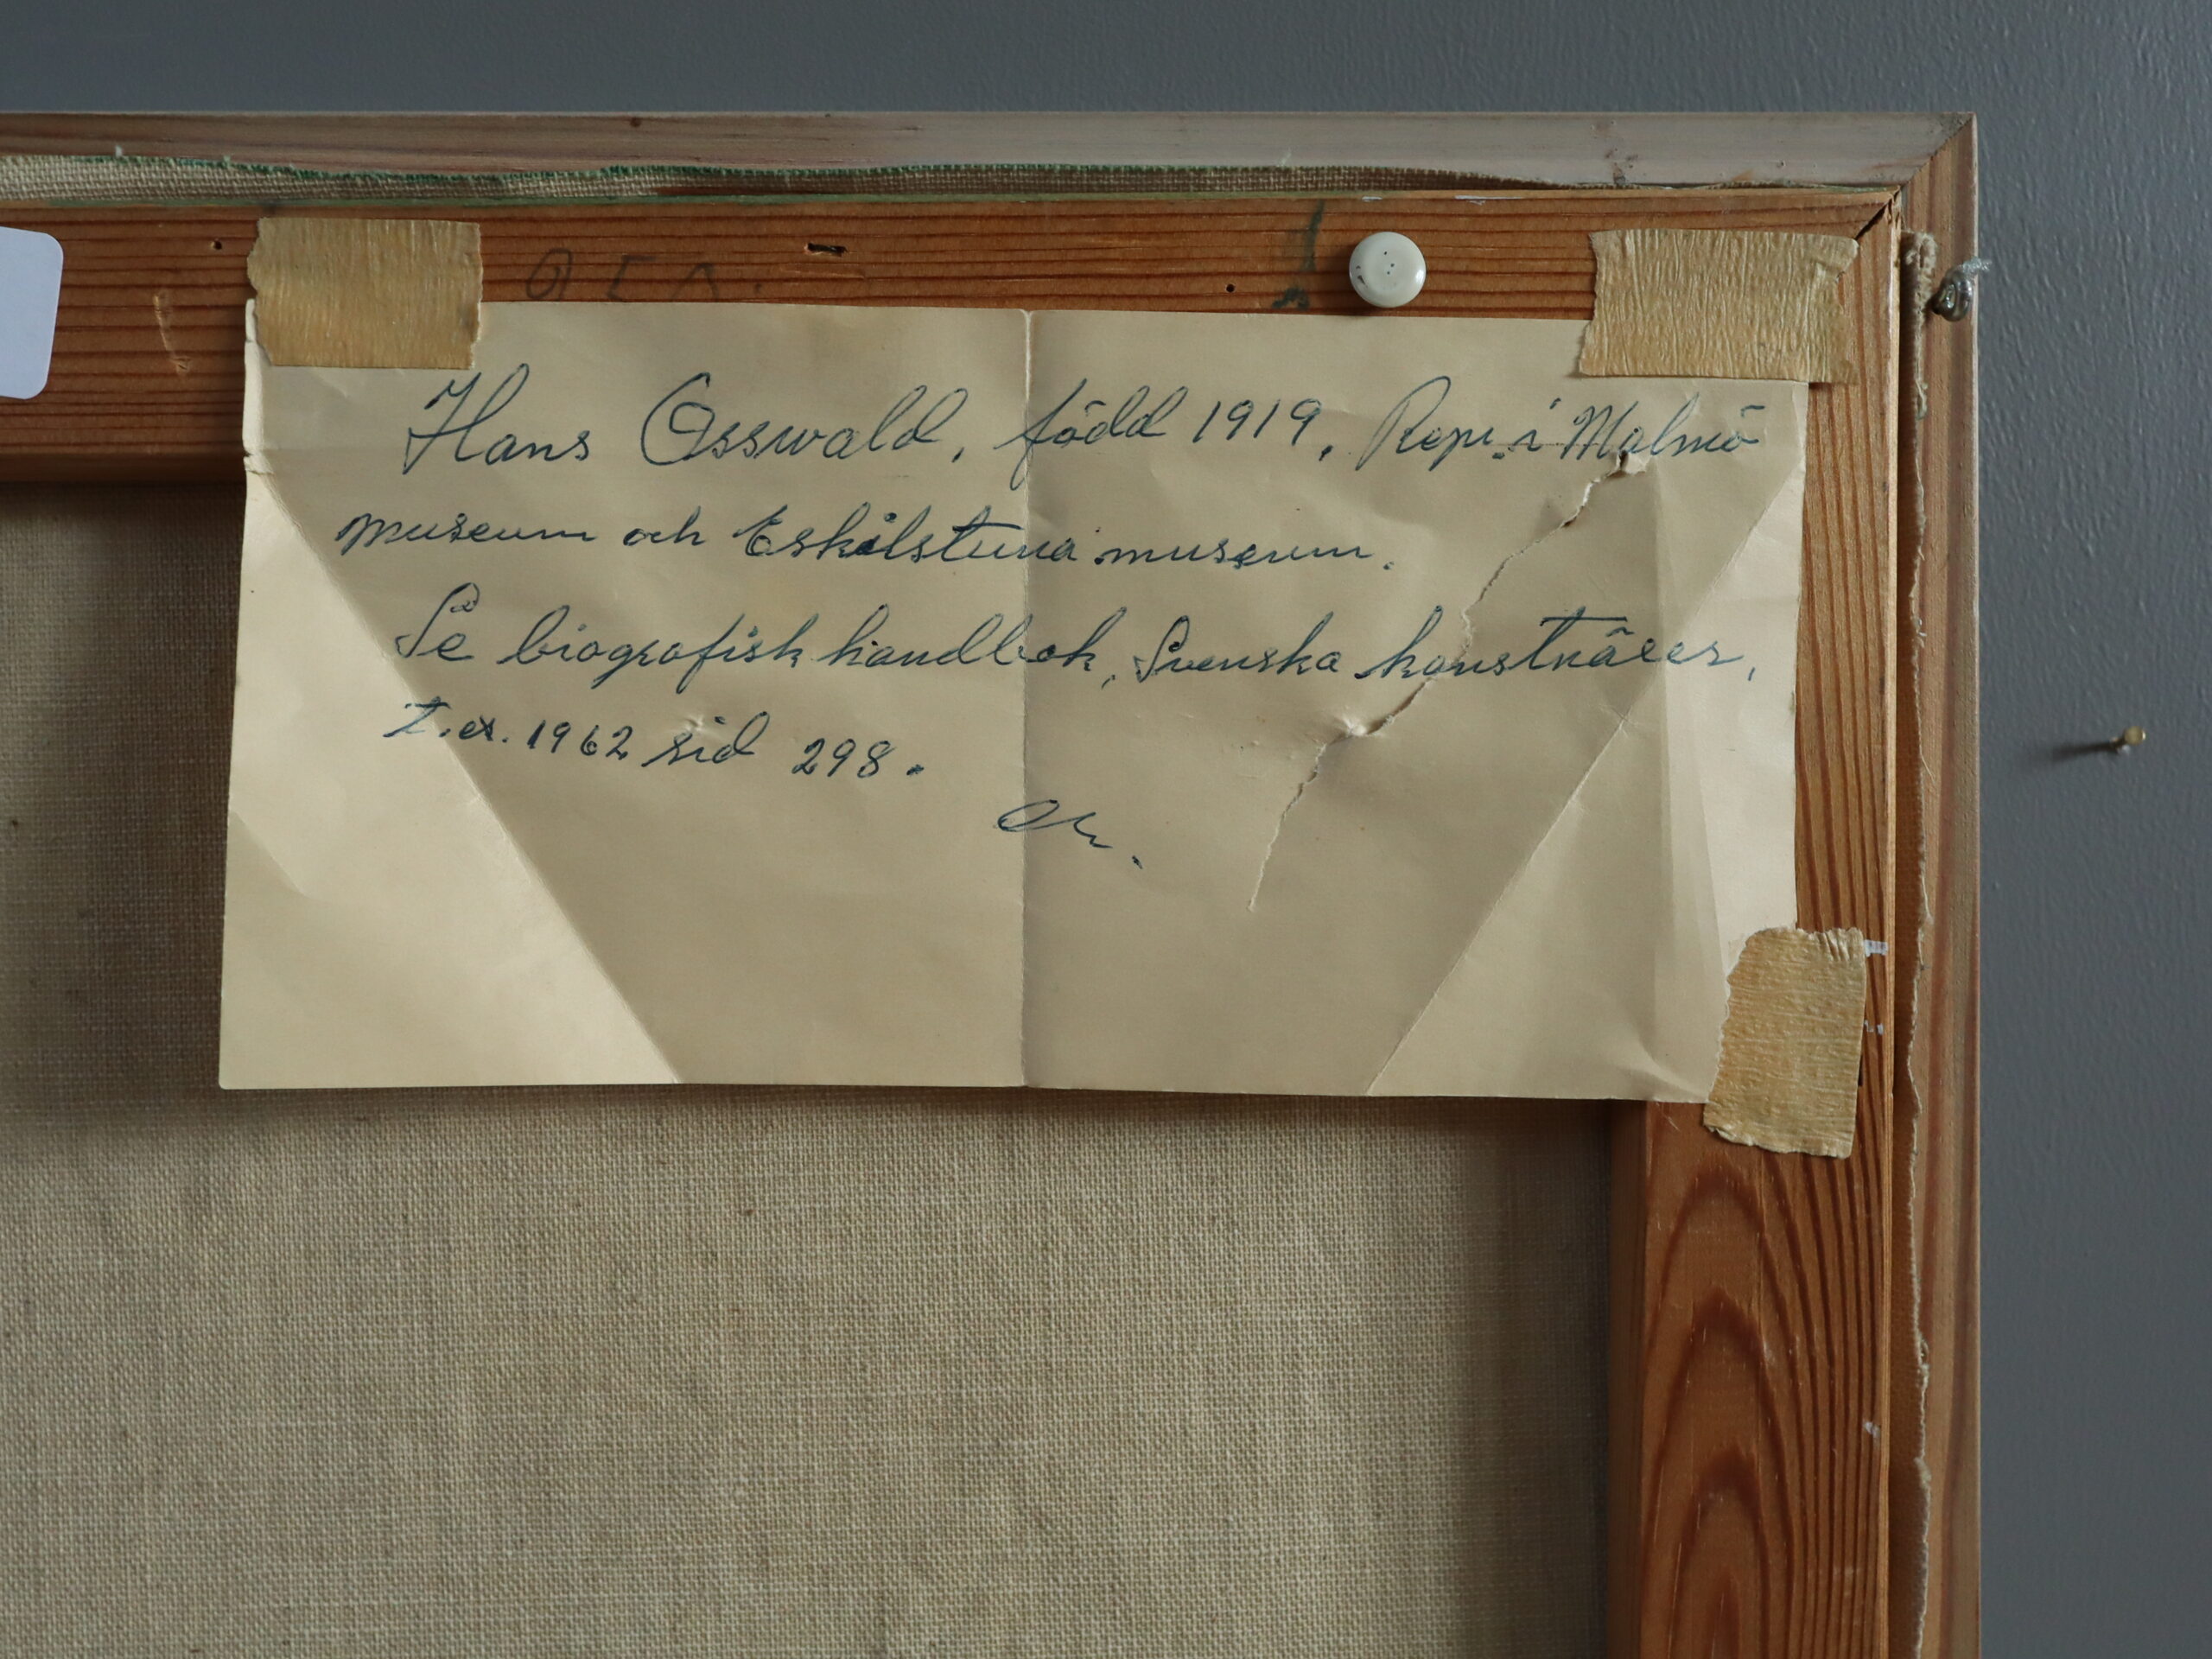 Hans Osswald, född 1919. Repr. i Malmö
museum och Eskilstuna museum.
Se biografisk handbok, Svenska konstnärer,
t.ex. 1962 sid 298.